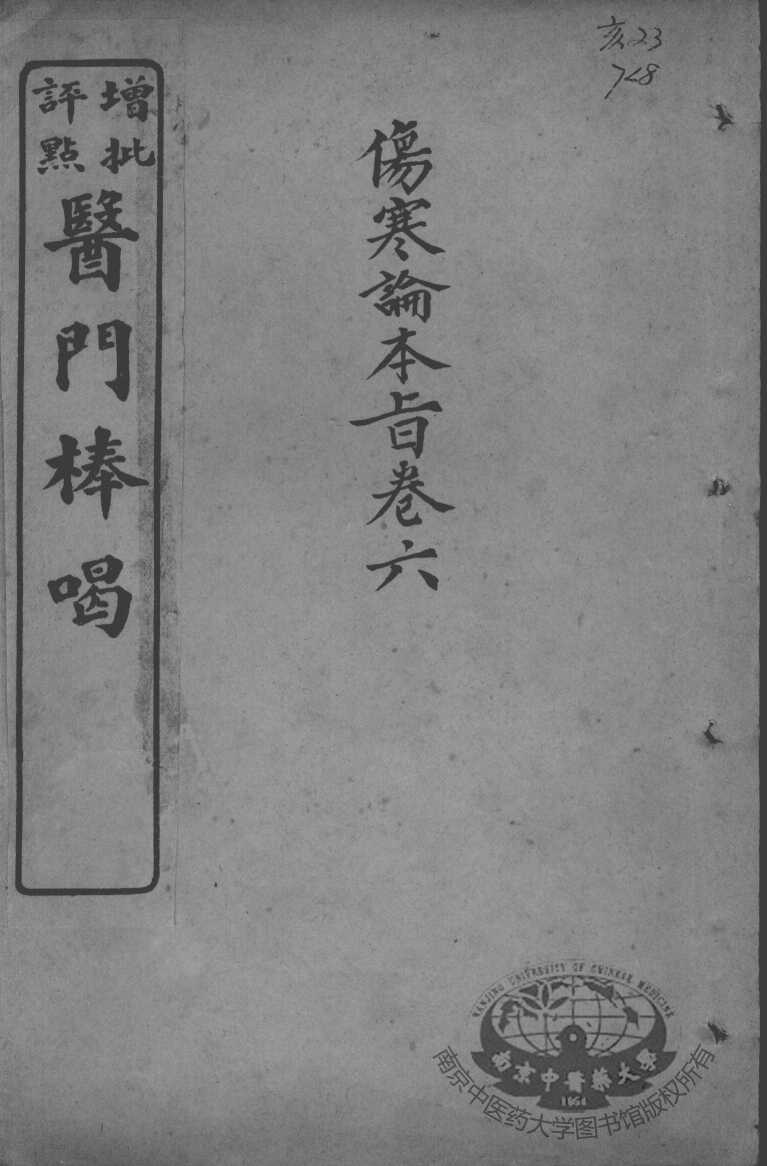 亥23
748
傷寒論本旨卷六
增批
評點
醫門棒喝
NANJING UNIVERSITY OF CHINESE MEDICINE
南京中醫藥大學
1954
南京中医药大学图书馆版权所有